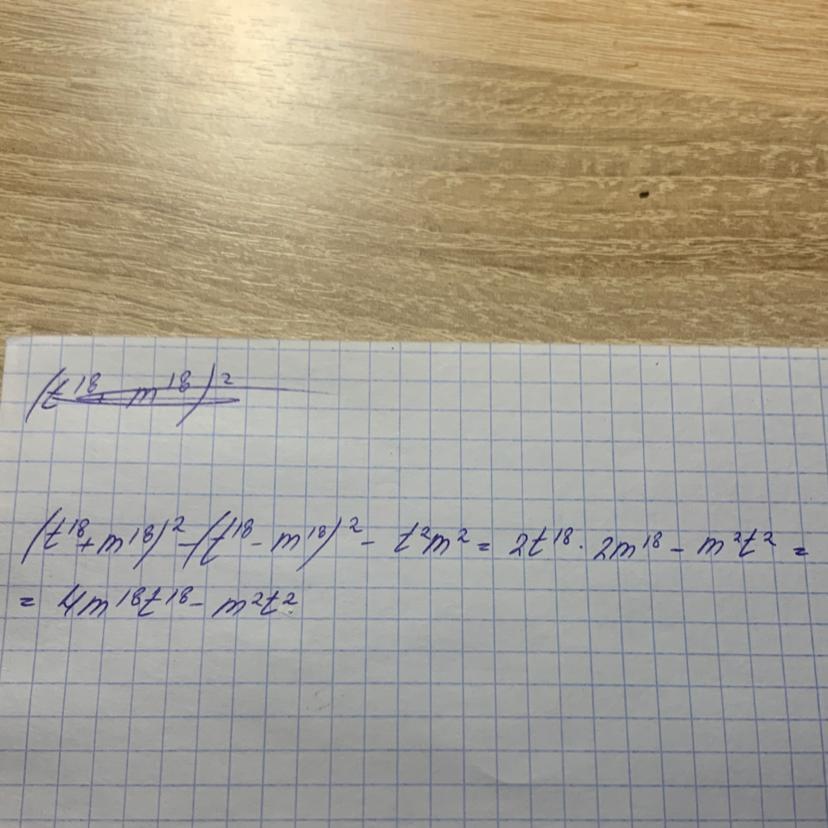 (t¹⁸ m¹⁸)²
(t¹⁸+m¹⁸)²-(t¹⁸-m¹⁸)²-t²m²=2t¹⁸·2m¹⁸-m²t²=
=4m¹⁸t¹⁸-m²t²